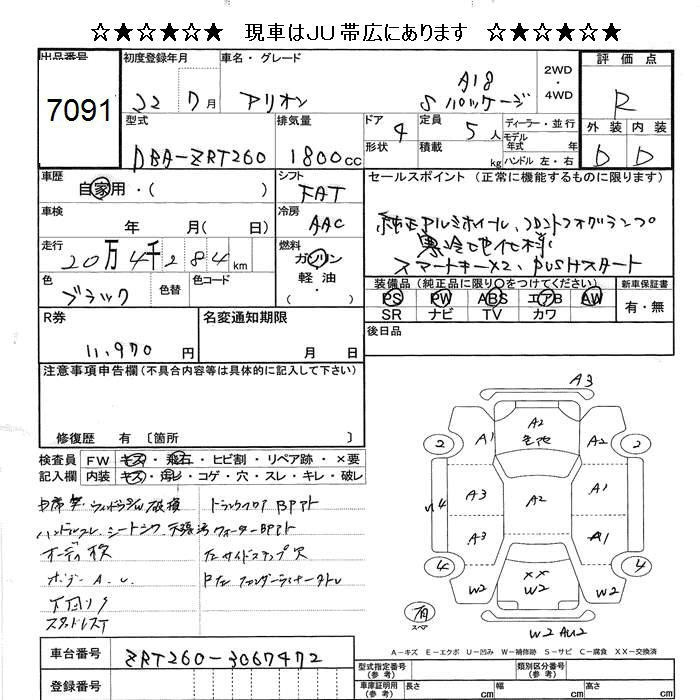 ☆★☆★☆★ 現車はJU帯広にあります ☆★☆★☆★
出品番号 初度登録年月 車名・グレード 2WD ・ 4WD 評価点
7091 22 7月 アリオン A18 Sパッケージ R
型式 排気量 ドア 4 定員 5人 ディーラー・並行 外装 内装
DBA-ZRT260 1800cc 形状 積載 kg モデル年式 年 ハンドル 左・右 D D
車歴 自家用・( ) シフト FAT セールスポイント (正常に機能するものに限ります)
車検 年 月( 日) 冷房 AAC 純正アルミホイール、フロントフォグランプ
寒冷地仕様
走行 20万4千284km 燃料 ガソリン 軽油 ・( ) スマートキーX2、PUSHスタート
色 ブラック 色替 色コード 装備品(純正品に限り○をつけてください) 新車保証書
PS PW ABS エアB AW 有・無
SR ナビ TV カワ
R券 11,970円 名変通知期限 月 日 後日品
注意事項申告欄(不具合内容等は具体的に記入して下さい)
修復歴 有 〔箇所 〕
検査員 FW キズ・飛石・ヒビ割・リペア跡・×要
記入欄 内装 キズ・汚れ・コゲ・穴・スレ・キレ・破レ
トランクフロア BPアト
ハンドルスレ、シートシワ、天張汚 クォーターBPアト
オーディオ欠 左サイドステップ穴
下回りサ
スタッドレス
A3
2 A1 A2 A2 2
A3 A2 A1
A3 A1
4 W2 XX W2 W2 4
有 スペア W2 AU2
A－キズ E－エクボ U－凹み W－補修跡 S－サビ C－腐食 XX－交換済
車台番号 ZRT260-3067472 型式指定番号(参考) 類別区分番号(参考)
登録番号 車庫証明用(参考) 長さ cm 幅 cm 高さ cm